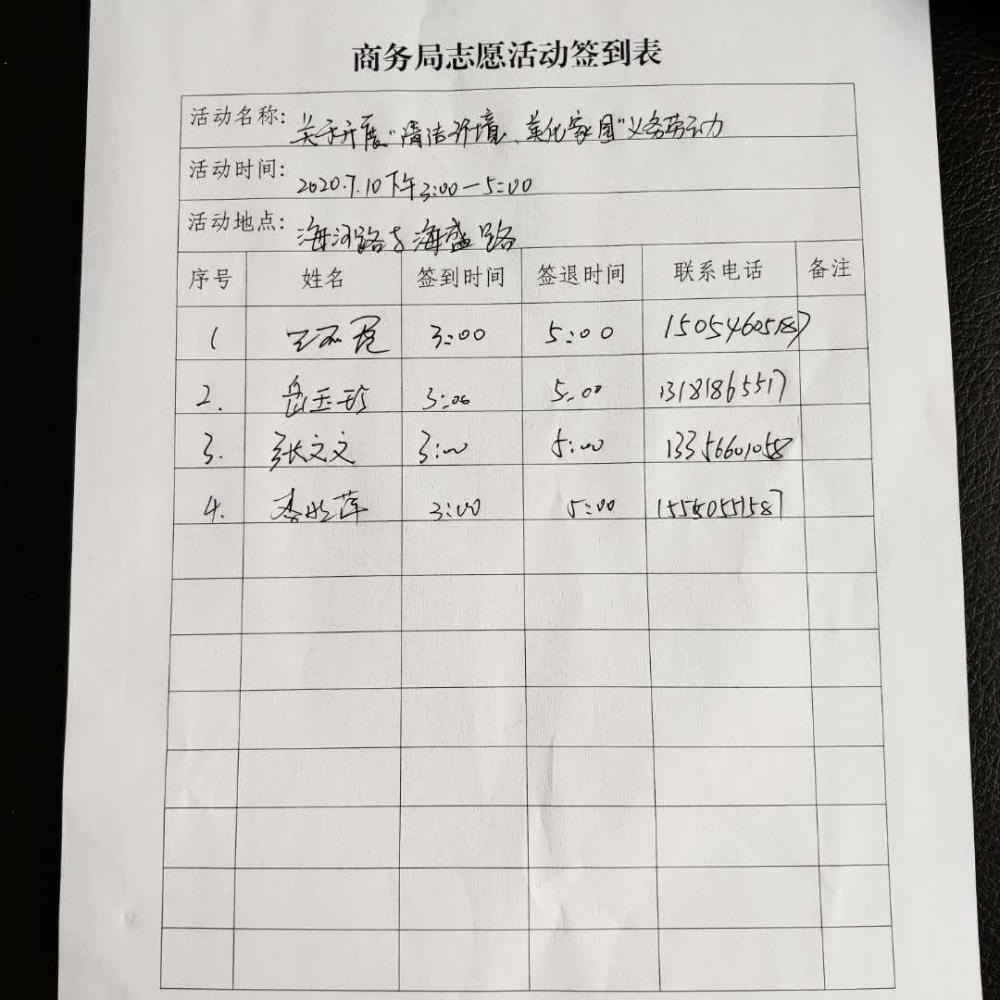 商务局志愿活动签到表
活动名称: 关于开展"清洁环境、美化家园"义务劳动力
活动时间: 2020.7.10下午3:00—5:00
活动地点: 海河路与海盛路
序号 姓名 签到时间 签退时间 联系电话 备注
1 3:00 5:00 15054605187
2. 岳玉珍 3:00 5:00 13181865517
3. 张文文 3:00 5:00 13356601058
4. 李 萍 3:00 5:00